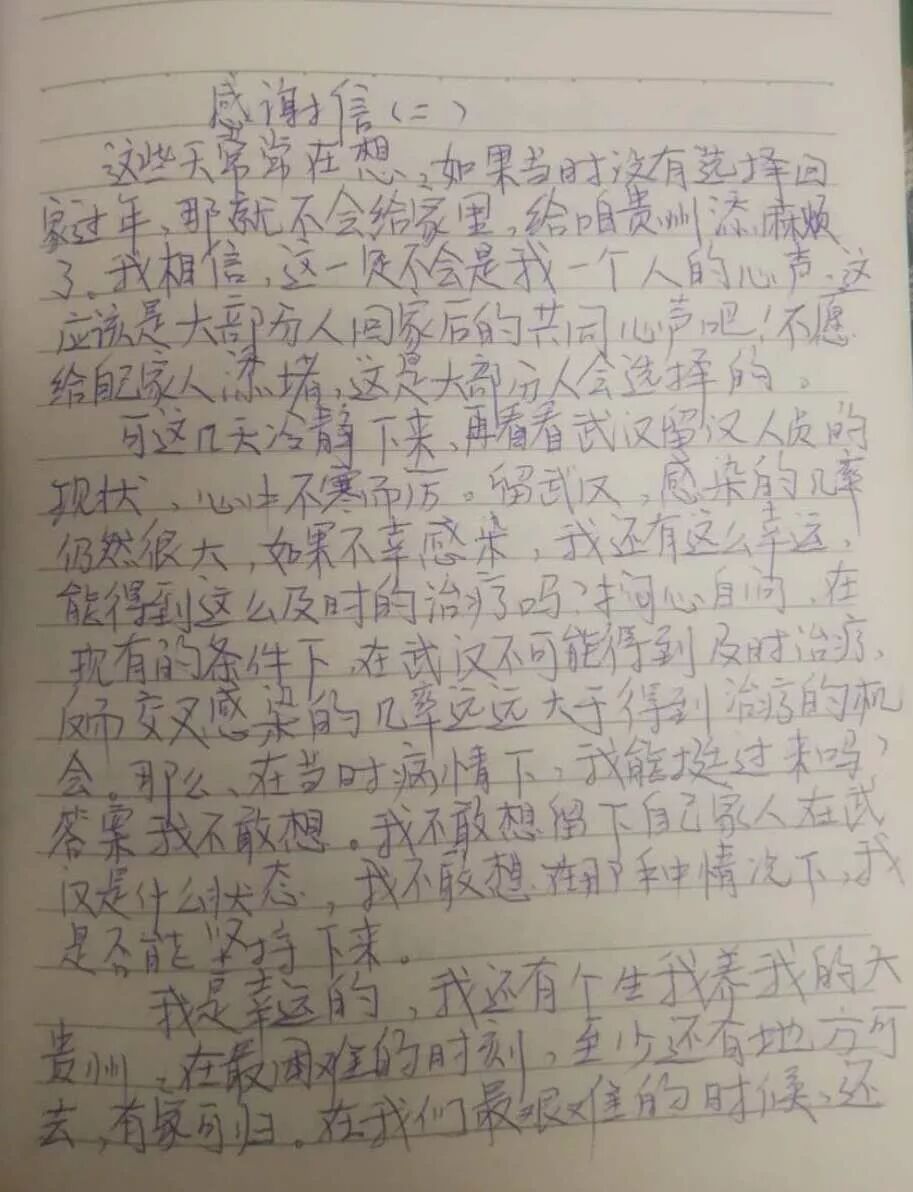 感谢信(二)
这些天常常在想,如果当时没有选择回
家过年,那就不会给家里,给咱贵州添麻烦
了。我相信,这一定不会是我一个人的心声,这
应该是大部分人回家后的共同心声吧!不愿
给自己家人添堵,这是大部分人会选择的。
可这几天冷静下来,再看看武汉留汉人员的
现状,心生不寒而厉。留武汉,感染的几率
仍然很大,如果不幸感染,我还有这么幸运,
能得到这么及时的治疗吗?扪心自问,在
现有的条件下,在武汉不可能得到及时治疗,
反而交叉感染的几率远远大于得到治疗的机
会。那么,在当时病情下,我能挺过来吗?
答案我不敢想。我不敢想留下自己家人在武
汉是什么状态,我不敢想在那种情况下,我
是否能坚持下来。
我是幸运的,我还有个生我养我的大
贵州,在最困难的时刻,至少还有地方可
去,有家可归。在我们最艰难的时候,还